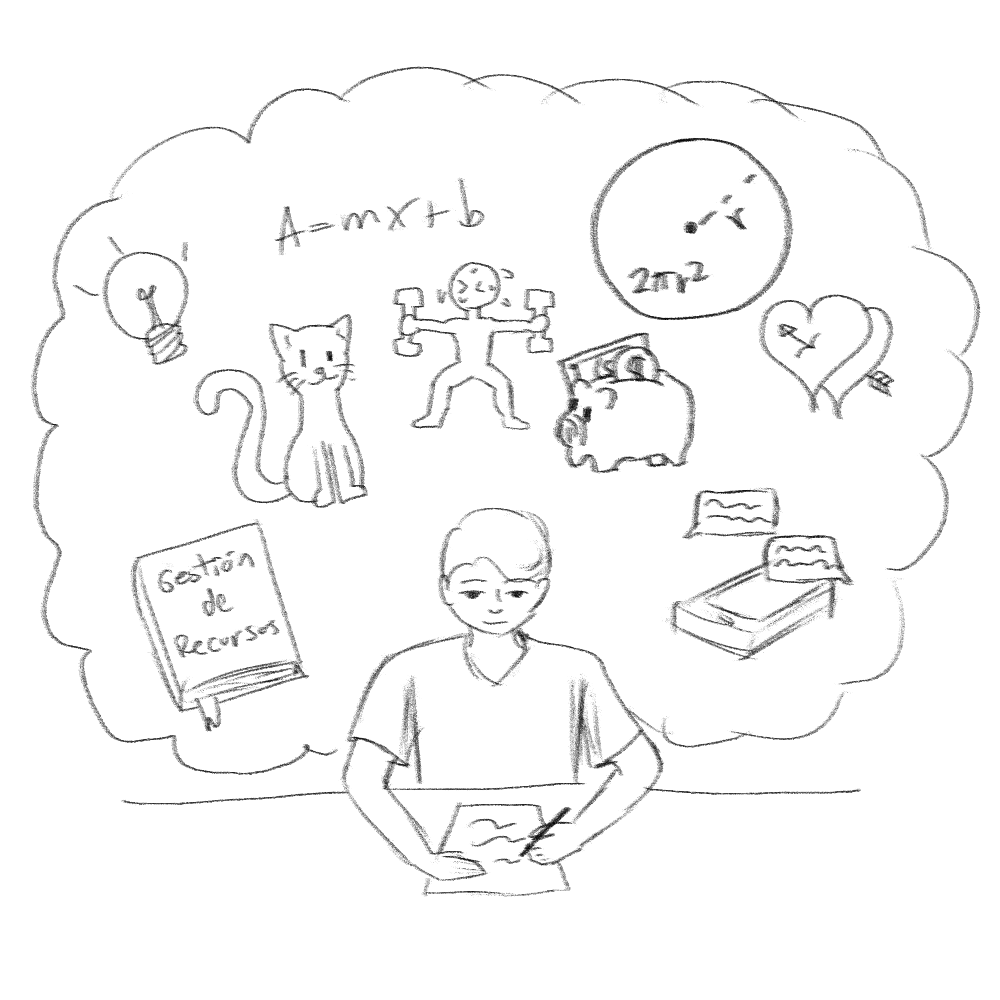 A=mx+b
r
2πr²
Gestión
de
Recursos